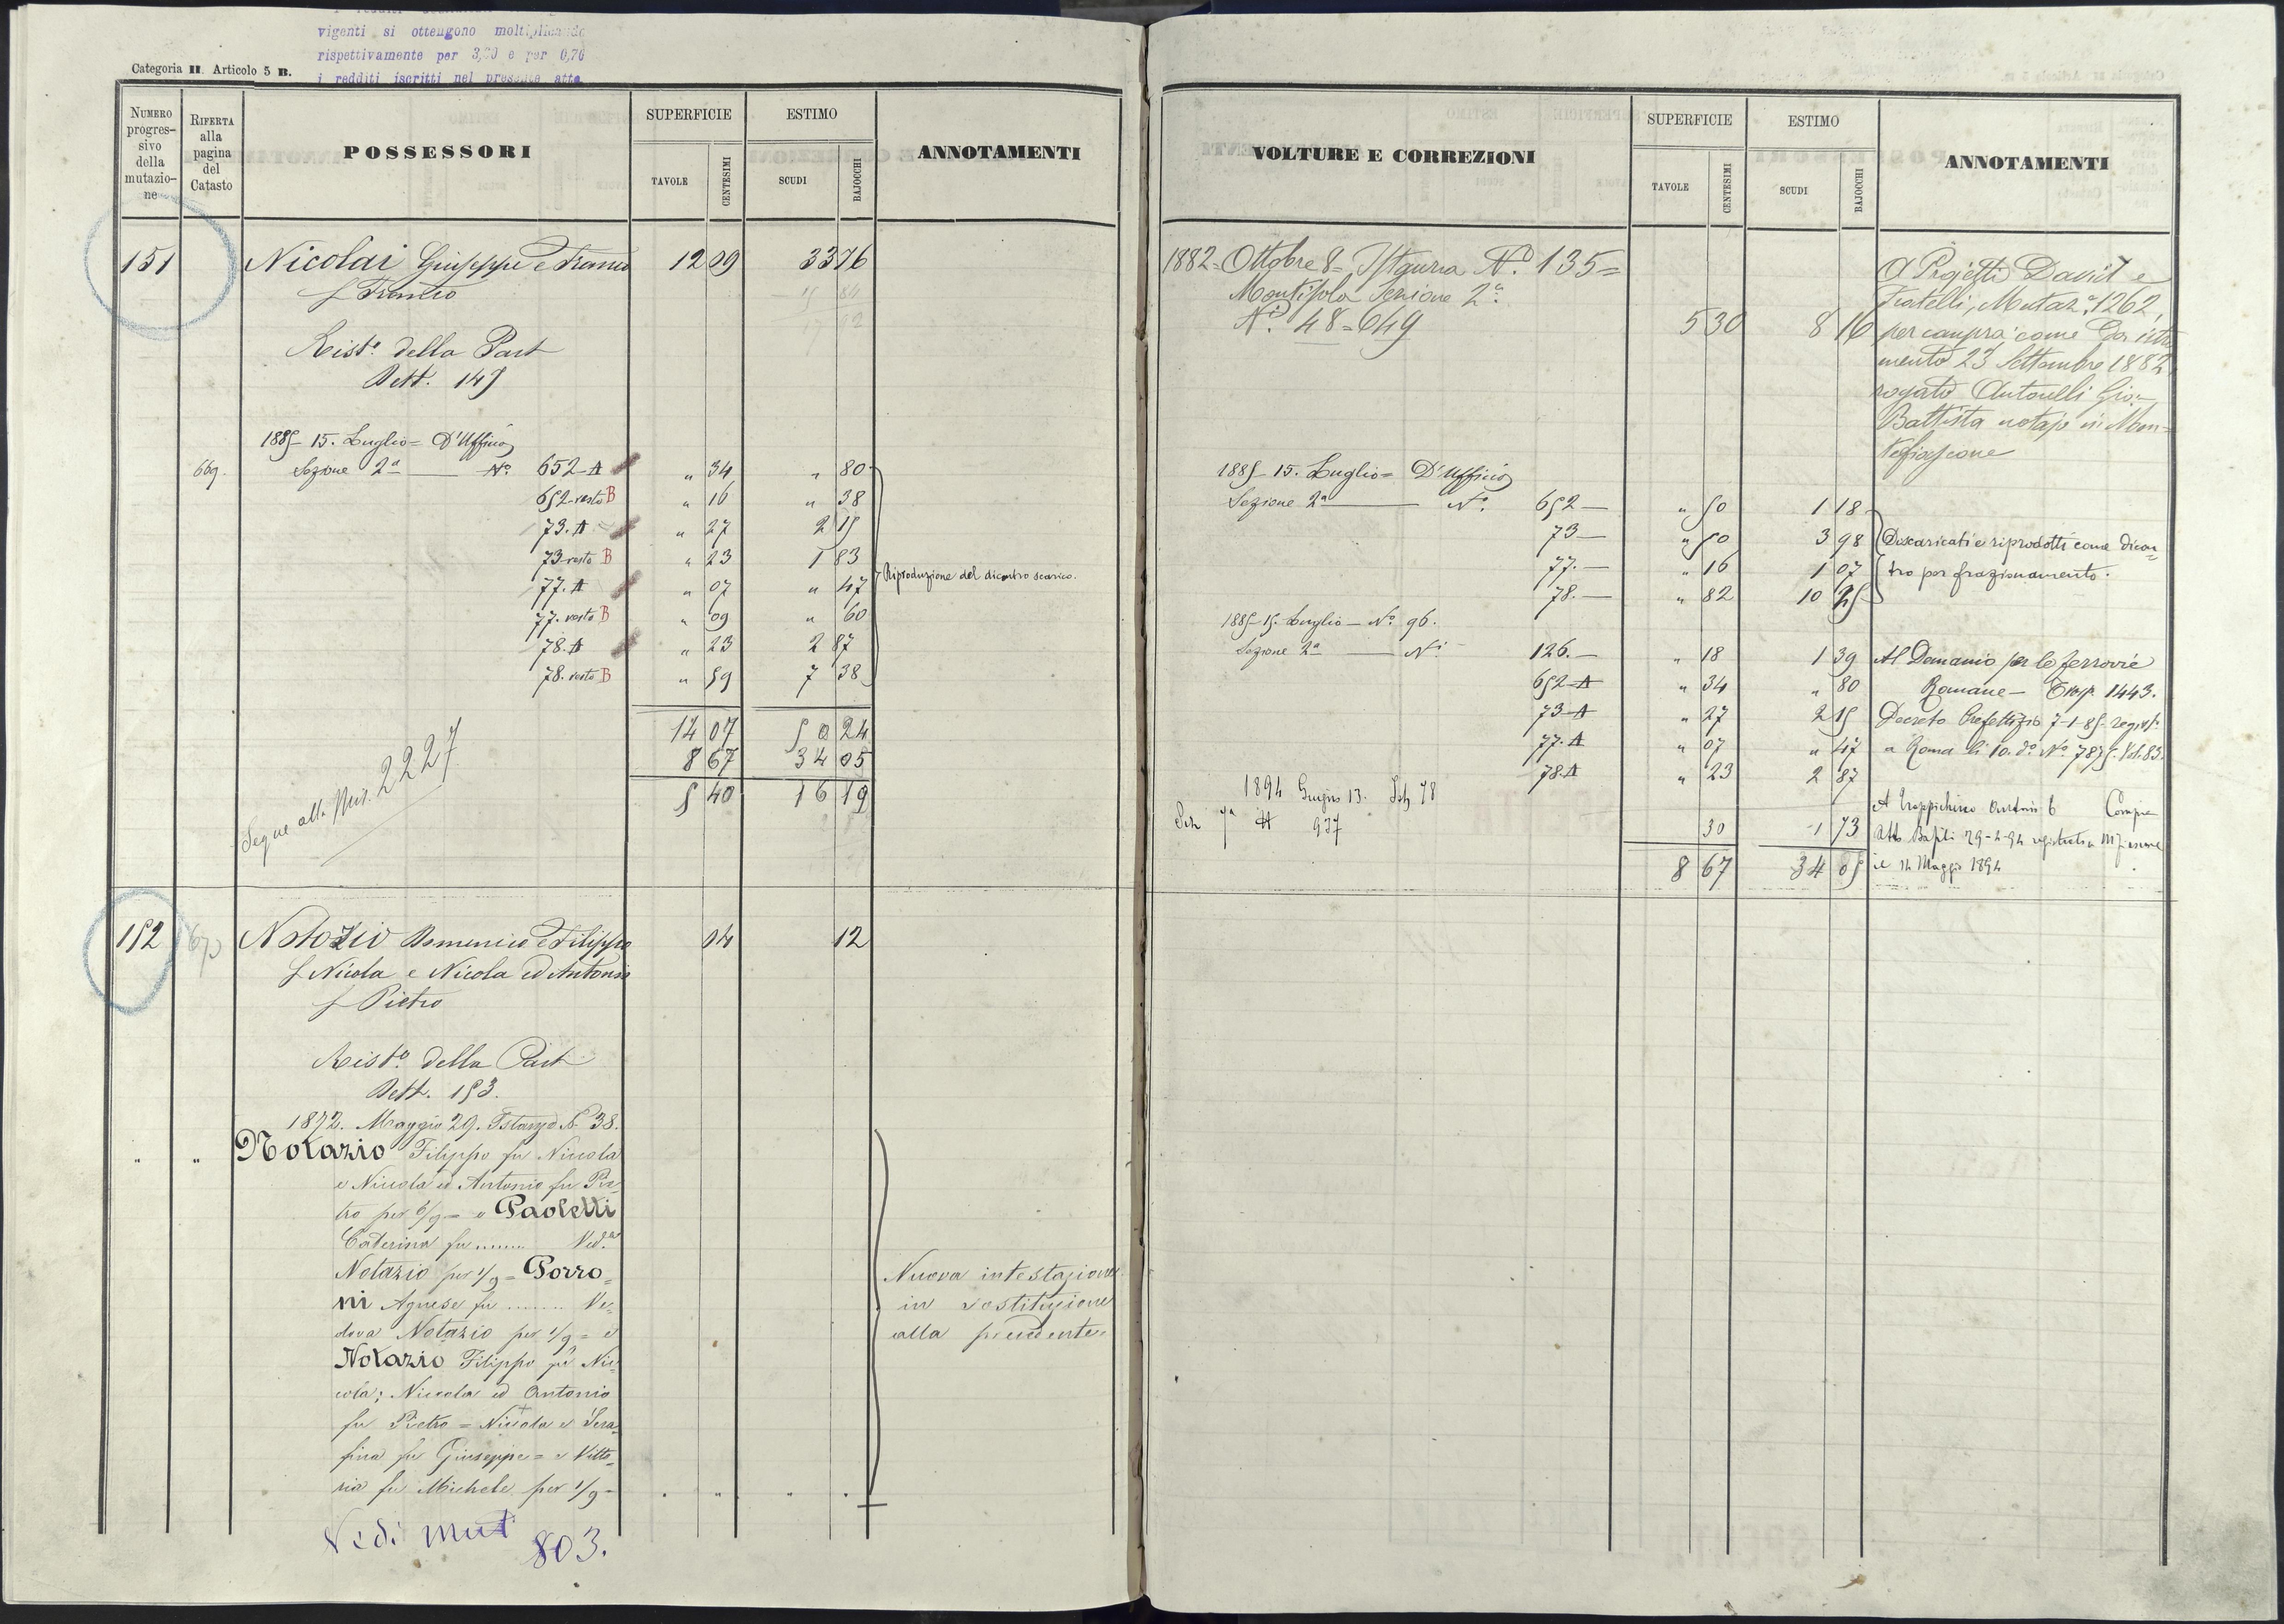 vigenti si ottengono moltiplicando
rispettivamente per 3,70 e per 0,70
i redditi iscritti nel presente atto
Categoria II. Articolo 5 B.
NUMERO progres-sivo della mutazio-ne
RIFERTA alla pagina del Catasto
POSSESSORI
SUPERFICIE
TAVOLE CENTESIMI
ESTIMO
SCUDI BAJOCCHI
ANNOTAMENTI
151 Nicolai Giuseppe e Franco 12 09 33 76
f Franco
Rist.o della Part
Dett. 145
1885 15. Luglio = D'Ufficio
669. Sezione 2a — No. 652-A " 34 " 80
652-resto B " 16 " 38
73. A " 27 2 15
73-resto B " 23 1 83
77. A " 07 " 47 Riproduzione del dicontro scarico.
77. resto B " 09 " 60
78. A " 23 2 87
78. resto B " 59 7 38
14 07 50 24
8 67 34 05
5 40 16 19
Segue alla Mut. 2227
152 Notazio Domenico e Filippo 04 12
f Nicola e Nicola ed Antonio
f Pietro
Rist.o della Part
Dett. 153.
1872. Maggio 29. Istanza N. 38.
" " Notazio Filippo fu Niccola
e Niccola ed Antonio fu Pie-
tro per 6/9 = e Paoletti
Caterina fu ........ Ved.a
Notazio per 1/9 = Porro=
ni Agnese fu ........ Ve-
dova Notazio per 1/9 = e
Notazio Filippo fu Nic-
cola; Niccola ed Antonio
fu Pietro = Niccola e Sera-
fina fu Giuseppe = e Vitto-
ria fu Michele per 1/9 =
Nuova intestazione
in sostituzione
alla precedente.
Vedi mut 803.
VOLTURE E CORREZIONI
SUPERFICIE
TAVOLE CENTESIMI
ESTIMO
SCUDI BAJOCCHI
ANNOTAMENTI
1882 = Ottobre 8 = Istanza N.o 135 =
Montisola Sezione 2a
N.i 48 = 649 5 30 8 16
A Projetti David e
Fratelli, Mutaz.e 1262,
per compra come da istru
mento 23 Settembre 1882
rogato Antonelli Gio:
Battista notajo in Mon=
tefiascone
1885 15. Luglio = D'Ufficio
Sezione 2a — N.i 652 — " 50 1 18
73 — " 50 3 98
77. — " 16 1 07
78. — " 82 10 25
Discaricati e riprodotti come dicon-
tro per frazionamento.
1885 15 Luglio — No. 96.
Sezione 2a — N.i 126. — " 18 1 39
652-A " 34 " 80
73-A " 27 2 15
77. A " 07 " 47
78. A " 23 2 87
Al Demanio per le ferrovie
Romane — Trasp. 1443.
Decreto Prefettizio 7-1-85 regist.
a Roma li 10. do No. 7875. Vol. 83.
1894 Giugno 13. 78
937 30 1 73
8 67 34 05
A Compra
Atto 29-4-94
il 14 Maggio 1894